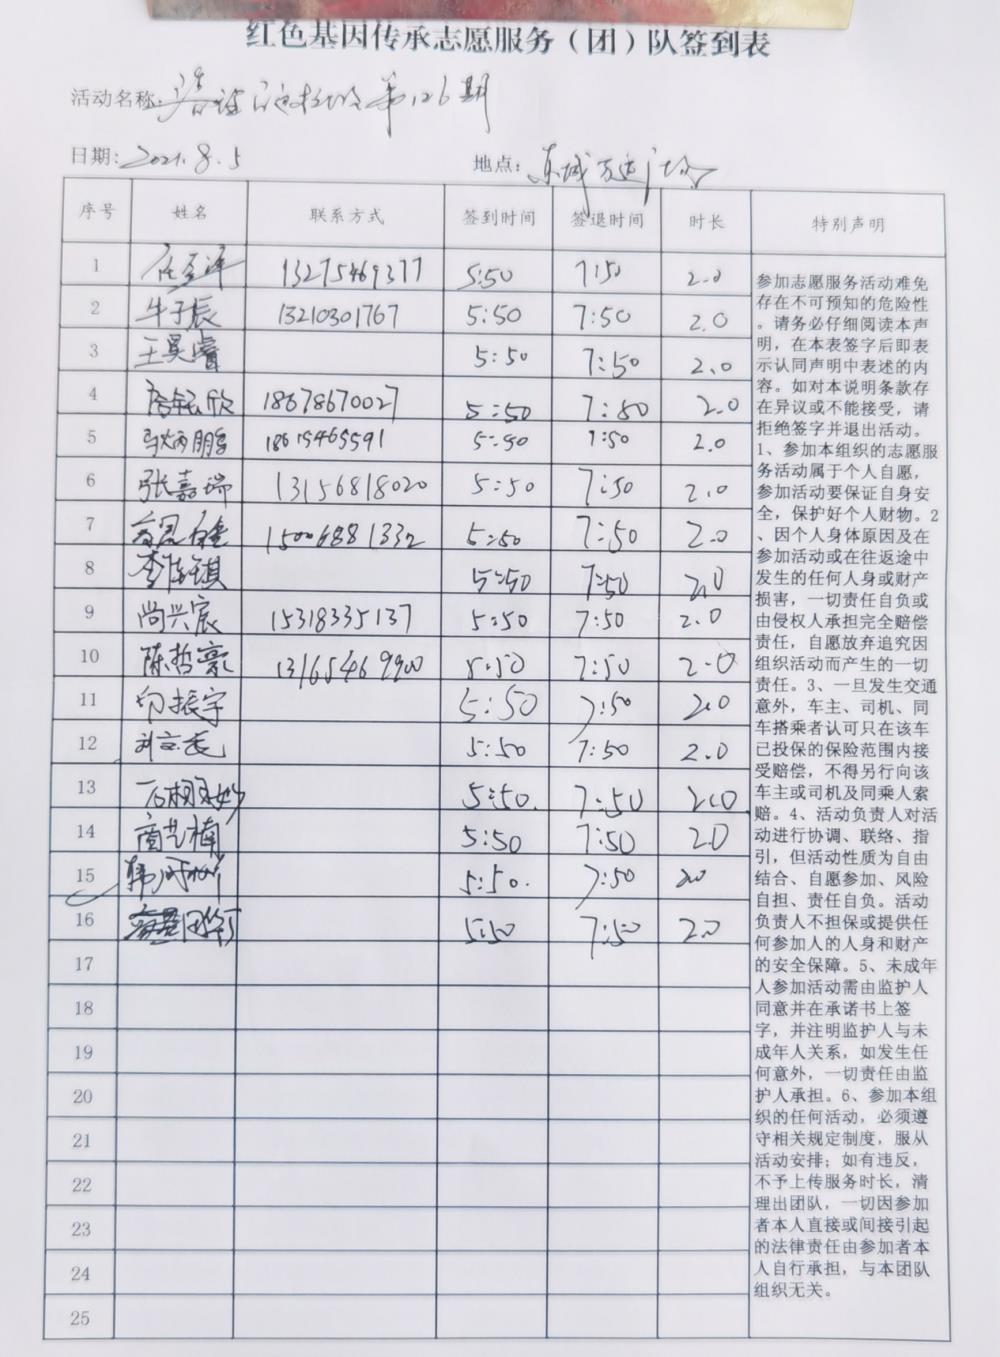 红色基因传承志愿服务（团）队签到表
活动名称: 第126期
日期: 2021.8.5 地点: 东城万达广场
序号 姓名 联系方式 签到时间 签退时间 时长 特别声明
1 13275469377 5:50 7:50 2.0
2 牛子辰 13210301767 5:50 7:50 2.0
3 王昊睿 5:50 7:50 2.0
4 18678670027 5:50 7:50 2.0
5 耿炳鹏 18615465591 5:50 7:50 2.0
6 张嘉瑞 13156818020 5:50 7:50 2.0
7 15006881332 5:50 7:50 2.0
8 李佳琪 5:50 7:50 2.0
9 尚兴宸 15318335137 5:50 7:50 2.0
10 陈哲豪 13165469900 5:50 7:50 2.0
11 振宇 5:50 7:50 2.0
12 5:50 7:50 2.0
13 5:50. 7:50 2.0
14 商艺楠 5:50 7:50 2.0
15 5:50. 7:50 2.0
16 5:50 7:50 2.0
17
18
19
20
21
22
23
24
25
参加志愿服务活动难免
存在不可预知的危险性
。请务必仔细阅读本声
明，在本表签字后即表
示认同声明中表述的内
容。如对本说明条款存
在异议或不能接受，请
拒绝签字并退出活动。
1、参加本组织的志愿服
务活动属于个人自愿，
参加活动要保证自身安
全，保护好个人财物。2
、因个人身体原因及在
参加活动或在往返途中
发生的任何人身或财产
损害，一切责任自负或
由侵权人承担完全赔偿
责任，自愿放弃追究因
组织活动而产生的一切
责任。3、一旦发生交通
意外，车主、司机、同
车搭乘者认可只在该车
已投保的保险范围内接
受赔偿，不得另行向该
车主或司机及同乘人索
赔。4、活动负责人对活
动进行协调、联络、指
引，但活动性质为自由
结合、自愿参加、风险
自担、责任自负。活动
负责人不担保或提供任
何参加人的人身和财产
的安全保障。5、未成年
人参加活动需由监护人
同意并在承诺书上签
字，并注明监护人与未
成年人关系，如发生任
何意外，一切责任由监
护人承担。6、参加本组
织的任何活动，必须遵
守相关规定制度，服从
活动安排；如有违反，
不予上传服务时长，清
理出团队，一切因参加
者本人直接或间接引起
的法律责任由参加者本
人自行承担，与本团队
组织无关。